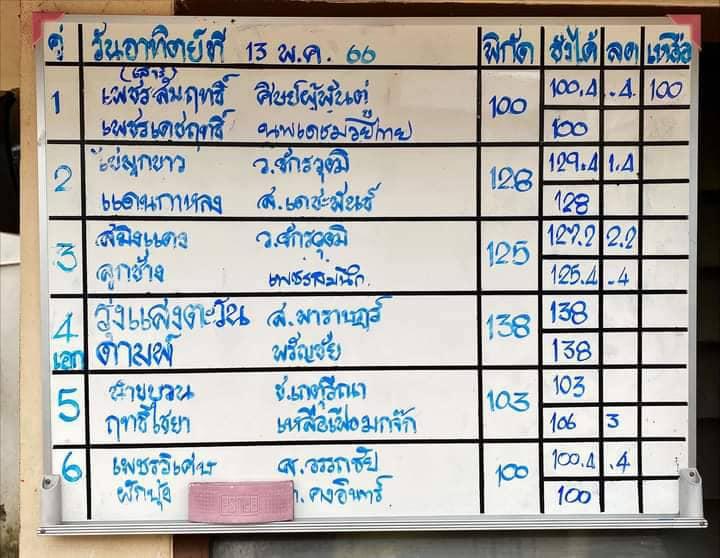 คู่ วันอาทิตย์ที่ 13 พ.ค. 66 พิกัด ชั่งได้ ลด เหลือ
1 เพชรสมฤทธิ์ ศิษย์ผู้พันตู่ 100 100.4 .4 100
เพชรเดชฤทธิ์ นพเดชมวยไทย 100
2 ไข่มุกขาว ว.จักรวุฒิ 128 129.4 1.4
แดนกาหลง ส.เดชะพันธ์ 128
3 สมิงแดง ว.จักรวุฒิ 125 127.2 2.2
ลูกช้าง เพชรสมนึก 125.4 .4
4 รุ่งแสงตะวัน 138 138
เอก ดามพ์ พรัญชัย 138
5 103 103
ฤทธิ์ไชยา เหลือเฟือมกจ๊ก 106 3
6 เพชรวิเศษ 100 100.4 .4
คงอินทร์ 100